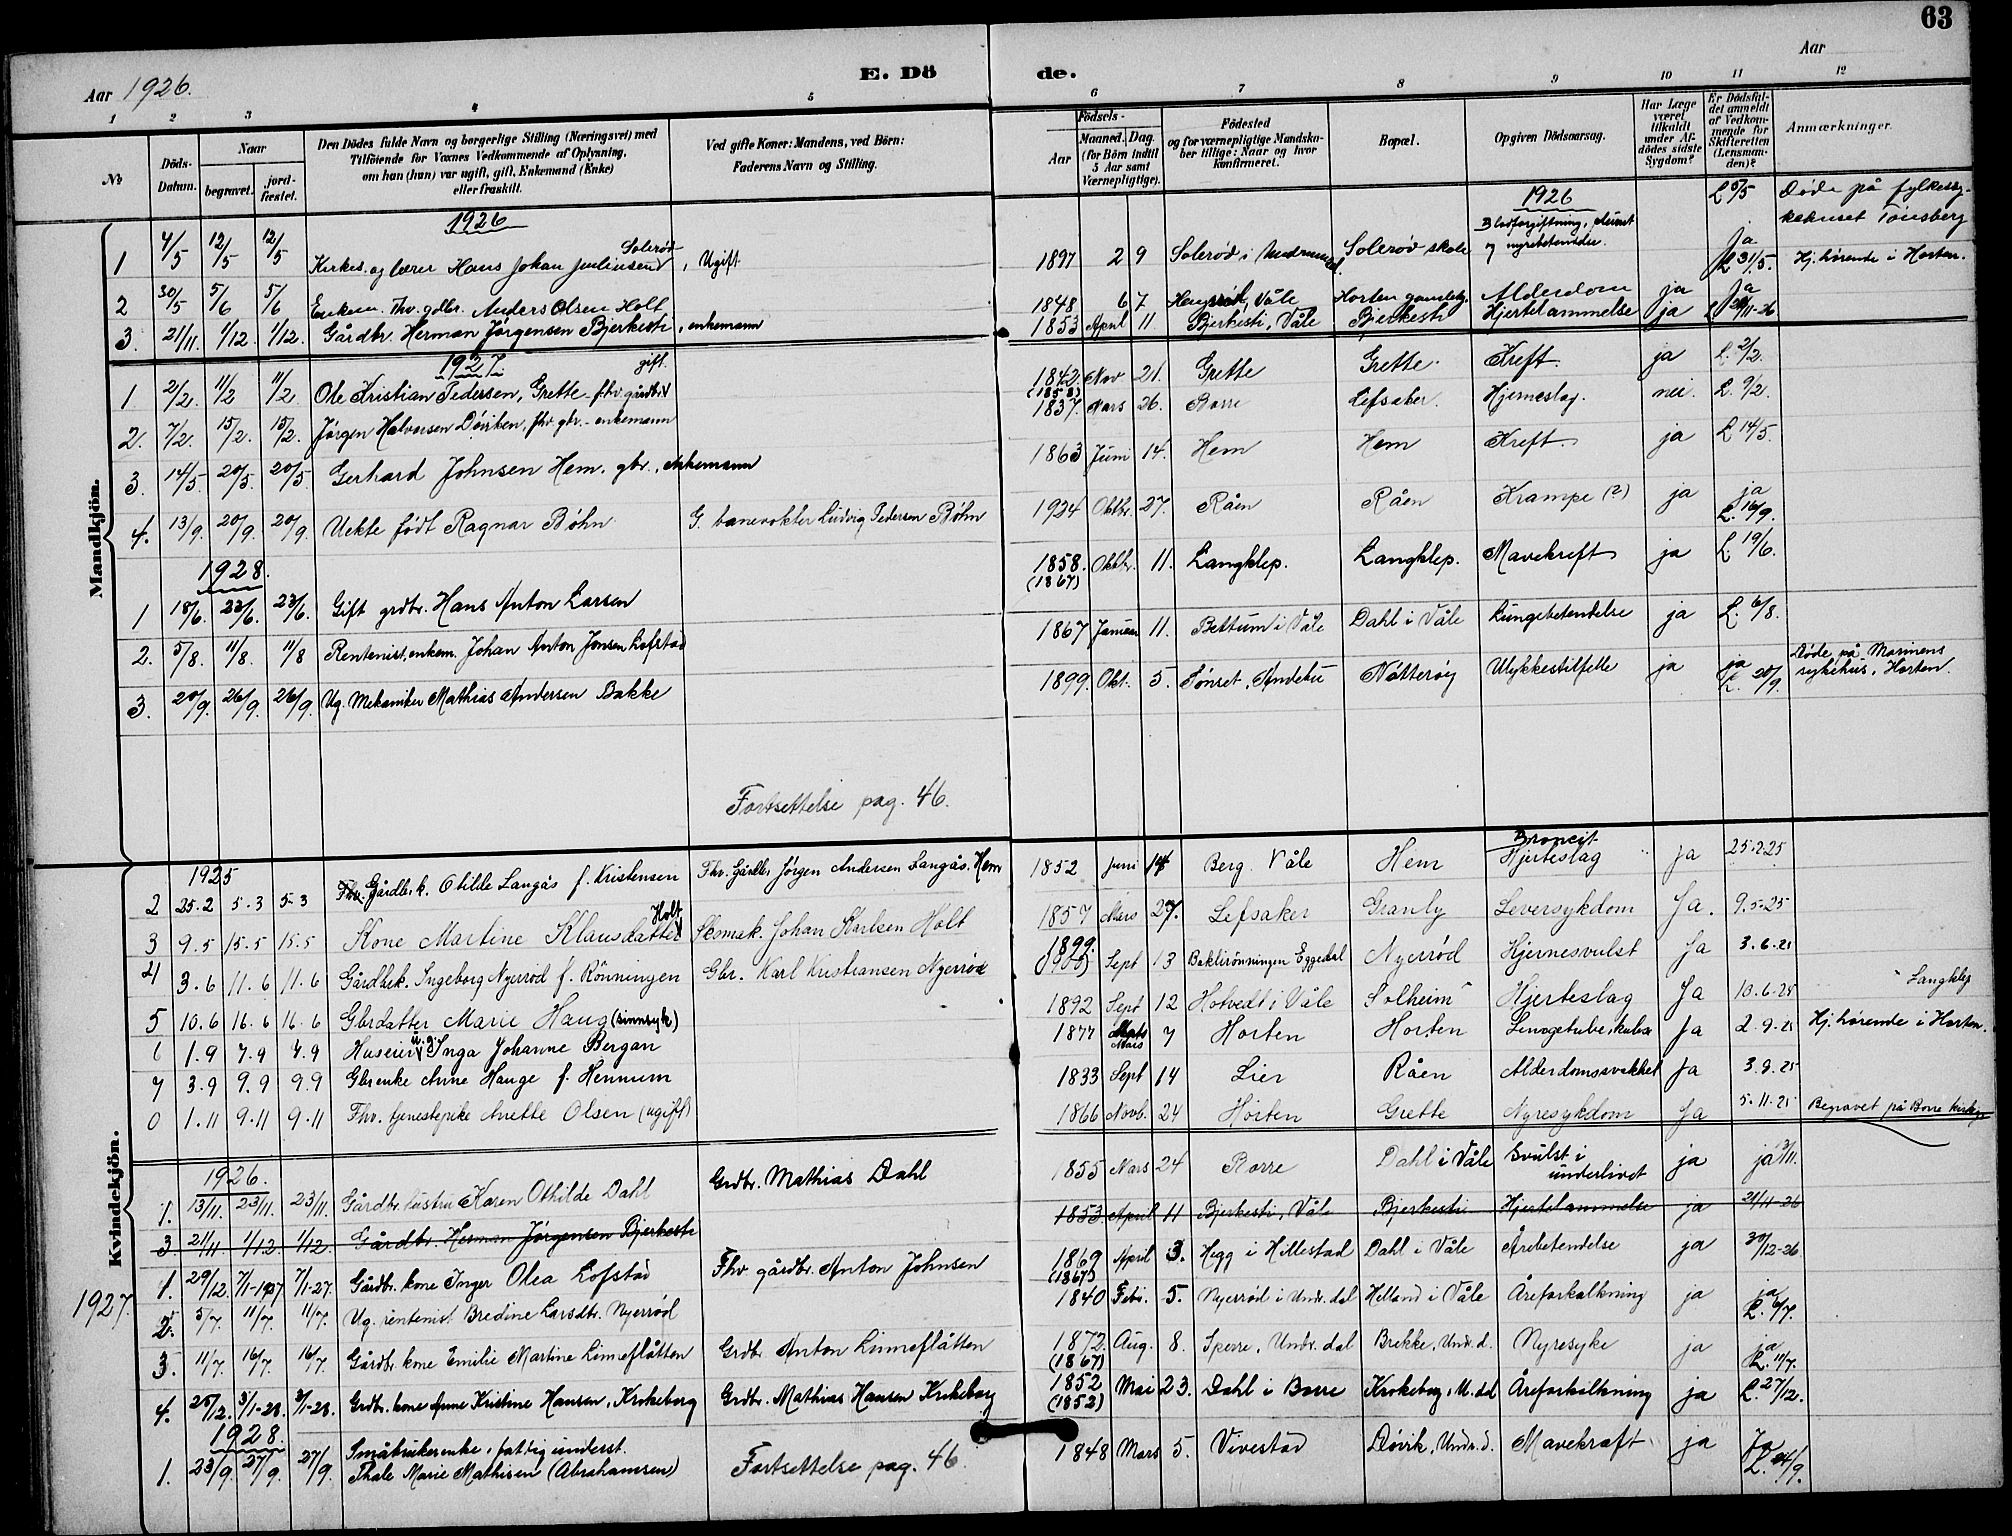 63
Aar 1926.
E. Dö de.
Aar
1 2 3 4 5 6 7 8 9 10 11 12
No
Döds-Datum.
Naar
begravet.
jord-fæstet.
Den Dödes fulde Navn og borgerlige Stilling (Næringsvei) med
Tilföiende for Voxnes Vedkommende af Oplysning,
om han (hun) var ugift, gift, Enkemand (Enke)
eller fraskilt.
Ved gifte Koner: Mandens, ved Börn:
Faderens Navn og Stilling.
Födsels-
Aar
Maaned. Dag.
(for Börn indtil 5 Aar samt Værnepligtige).
Födested
og for værnepligtige Mandska-
ber tillige: Naar og hvor
konfirmeret.
Bopæl.
Opgiven Dödsaarsag.
Har Læge været tilkaldt under Af-dödes sidste Sygdom?
Er Dödsfal-det anmeldt af Vedkom-mende for Skifteretten (Lensman-den)?
Anmærkninger.
Mandkjön.
1926
1926
1 4/5 12/5 12/5 Kirkes. og lærer Hans Johan Juliussen Solerød, Ugift 1897 2 9 Solerød i Undrumsd. Solerød skole Blodforgiftning, og nyrebetendelse. L 5/5 ja Døde på fylkessy-kehuset Tönsberg
2 30/5 5/6 5/6 Enkem. fhv. gdbr. Anders Olsen Holt 1848 6 7 Våle Horten gamlehj. Alderdom ja ja L 31/5. Hj. hörende i Horten.
3. 21/11. 1/12. 1/12. Gårdbr. Herman Jørgensen Bjerkesti, enkemann 1853 April 11 Bjerkesti, Våle Bjerkesti Hjertelammelse ja ja L 20/11-26
1927.
1 2/2. 11/2 11/2 Ole Kristian Pedersen, Grette fhv. gårdbr. gift 1842. (1858) Nov 21. Grette Grette Kreft. ja L. 2/2.
2. 7/2. 15/2. 15/2. Jørgen Halvorsen Døviken, fhv gbr. - enkemann 1837. Mars 26. Borre Lefsaker. Hjerneslag. nei. L. 9/2.
3. 14/5. 20/5. 20/5. Gerhard Johnsen Hem. gbr., enkemann 1863 Juni 14. Hem Hem Kreft ja L 14/5.
4. 13/9. 20/9. 20/9. Uekte født Ragnar Bøhn G. banevokter Ludvig Pedersen Bøhn 1924 Oktbr. 27. Råen Råen Krampe (?) ja ja L. 16/9.
1928.
1 18/6. 23/6. 23/6. Gift grdbr. Hans Anton Larsen 1858. (1867) Oktbr. 11. Langklep. Langklep. Mavekreft ja L. 19/6.
2. 5/8. 11/8. 11/8 Rentenist, enkem. Johan Anton Jonsen Lofstad 1867 Januar 11. Bettum i Våle Dahl i Våle Lungebetendelse ja L. 6/8.
3. 20/9. 26/9. 26/9. Ug. Mekaniker Mathias Andersen Bakke 1899. Okt. 5. Sønset, Andebu Nötterøy Ulykkestilfelle ja ja L. 20/9. Døde på Marinens sykehus, Horten.
Fortsettelse pag. 46.
Kvindekjön.
1925
2 25.2 5.3 5-3 Fhv. Gårdbr.k. Otilde Langås f. Kristensen Fhv. Gårdbr. Jörgen Andersen Langås. Hem 1852 juni 14 Berg. Våle Hem Broncit Hjerteslag Ja 25.2.25
3 9.5 15.5 15.5 Kone Martine Klausdatter Holt Skomak. Johan Karlsen Holt 1857 Mars 27. Lefsaker Granly Leversykdom Ja. 9.5-25
4 3.6 11.6 11.6 Gårdbrk. Ingeborg Nyerrød f. Rönningen Gbr. Karl Kristiansen Nyerröd 1899. Sept 13 Baklirönningen Eggedal Nyerrød Hjernesvulst Ja 3.6-25
5 10.6 16.6 16.6 Gbrdatter Marie Haug (sinnsyk) 1892 Sept 12 Hotvedt i Våle Solheim Hjerteslag Ja 10.6-25 Langklep
1.9 7.9 7.9 Huseier Ug. Inga Johanne Bergan 1877 Mars 7 Horten Horten Ja 2.9.25 Hj. hörende i Horten.
7 3.9 9.9 9.9 Gbrenke Anne Hauge f. Hennum 1833 Sept 14 Lier Råen Alderdomssvakhet Ja 3.9.25
1.11 9.11 9.11 Fhv. tjenestepike Anette Olsen (ugift) 1866 Novb. 24 Horten Grette Nyresykdom Ja 5.11.25 Begravet på Borre kirkeg.
1926.
1. 13/11. 23/11. 23/11. Gårdbr. hustru Karen Othilde Dahl Grdbr. Mathias Dahl 1855 Mars 24 Borre Dahl i Våle Svulst i underlivet ja ja 13/11.
3 21/11 1/12 1/12. Gårdbr. Herman Jørgensen Bjerkesti 1853 April 11 Bjerkesti, Våle Bjerkesti Hjertelammelse ja 21/11-26
1927.
1. 29/12. 7/1-1927 7/1-27. Gårdbr. kone Inger Olea Lofstad Fhv. gårdbr. Anton Johnsen 1869 (1867) April 3. Hegg i Hillestad Dahl i Våle Årebetendelse ja 30/12-26
2. 5/7. 11/7. 11/7. Ug. rentenist Bredine Larsdtr. Nyerrød 1840 Febr. 5. Nyerrød i Undr.dal Helland i Våle Åreforkalkning ja ja L. 6/7.
3. 11/7. 16/7. 16/7 Gårdbr. kone Emilie Martine Linneflåtten Grdbr. Anton Linneflåtten 1872. (1867) Aug. 8. Sperre, Undr. dal Brekke, Undr. d. Nyresyke ja ja L. 11/7.
4. 25/12. 3/1-28. 3/1-28. Grdbr. kone Anne Kristine Hansen, Krokeborg Grdbr. Mathias Hansen Krokeborg 1852 (1852) Mai 23. Dahl i Borre Krokeborg, U.dal Åreforkalkning ja L. 27/12.
1928.
1. 23/9. 27/9. 27/9. Småbrukerenke, fattigunderst. Thale Marie Mathisen (Abrahamsen) 1848 Mars 5. Vivestad Døvik, Undr. d. Mavekræft ja Ja L. 24/9.
Fortsettelse pag. 46.